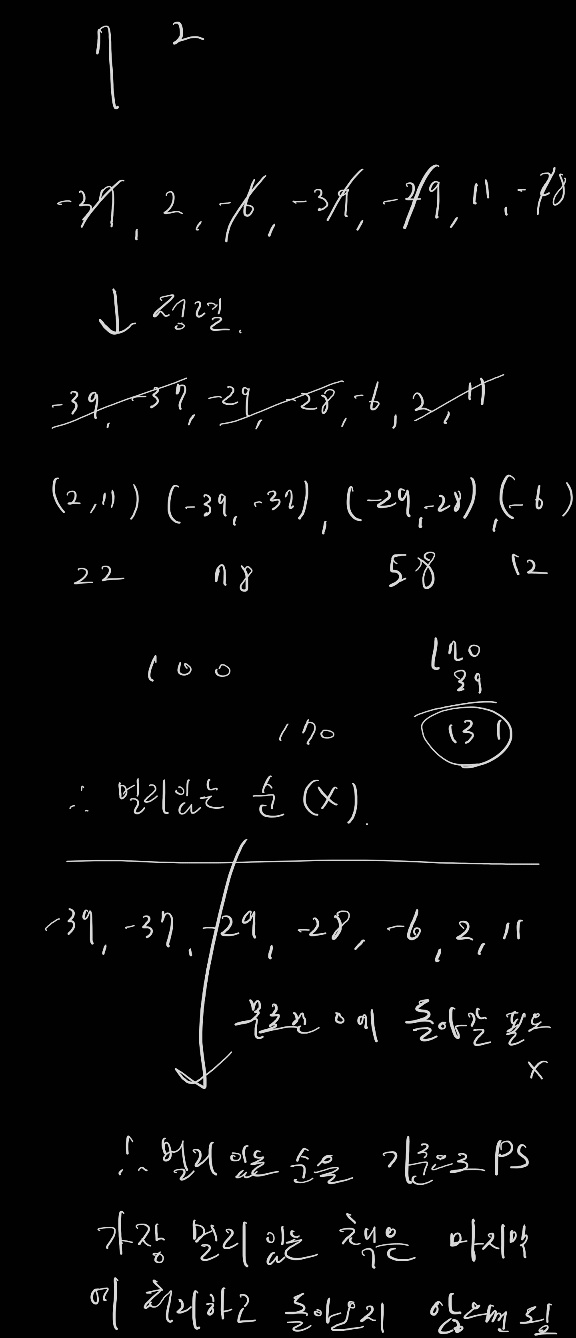 7 2
-37, 2, -6, -39, -29, 11, -28
↓ 정렬.
-39, -37, -29, -28, -6, 2, 11
(2, 11) (-39, -37), (-29, -28), (-6)
22 78 58 12
100 170
39
170 131
∴ 멀리있는 순 (X).
-39, -37, -29, -28, -6, 2, 11
무조건 0에 돌아갈 필요
X
∴ 멀리 있는 순을 기준으로 PS
가장 멀리 있는 책은 마지막
에 처리하고 돌아오지 않으면 됨